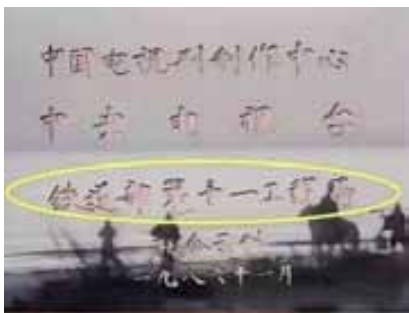 中国电视剧制作中心
中央电视台
铁道部第十一工程局
联合录制
一九八 十一月